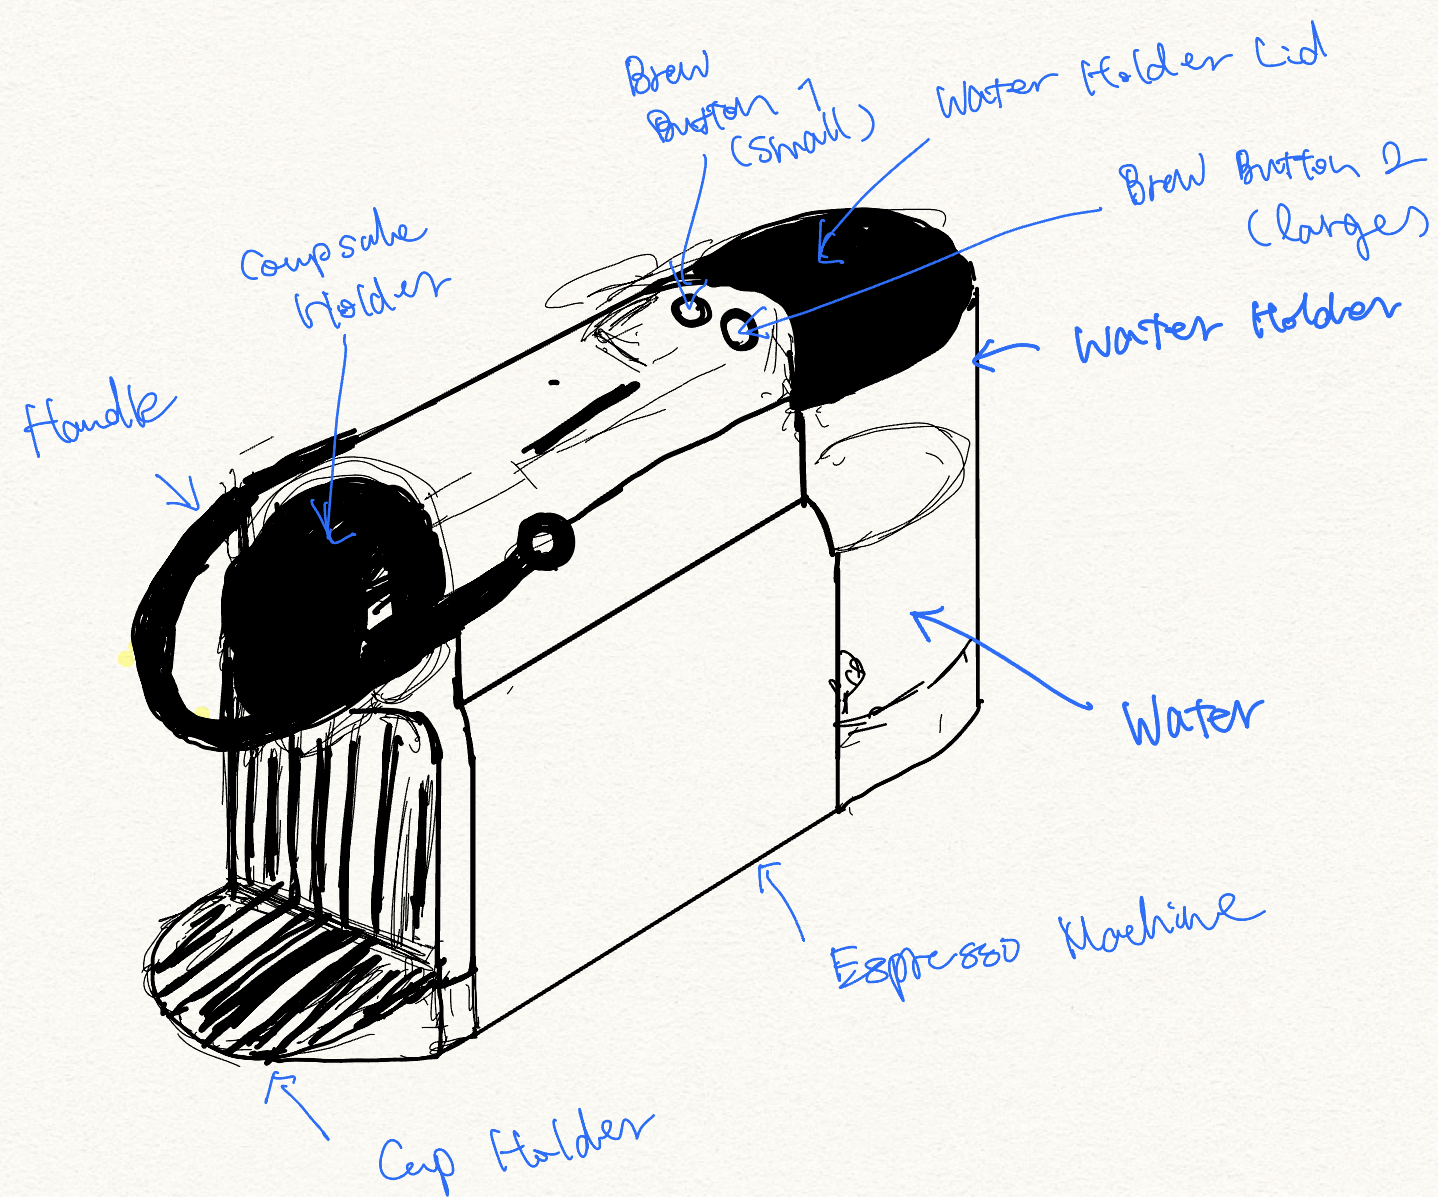 Brew
Button 1
(Small)
Water Holder Lid
Brew Button 2
(large)
Coupsake
Holder
Water Holder
Handle
Water
Espresso Machine
Cup Holder